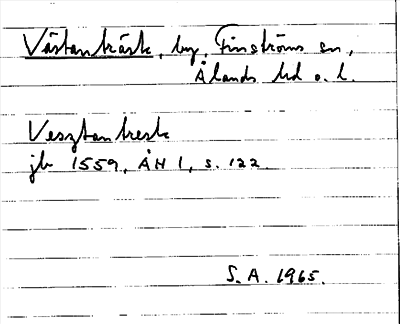 Västanträsk, by, Finströms sn,
Ålands hd o. l.
Vesztantresk
jb 1559, ÅH 1, s. 122.
S. A. 1965.